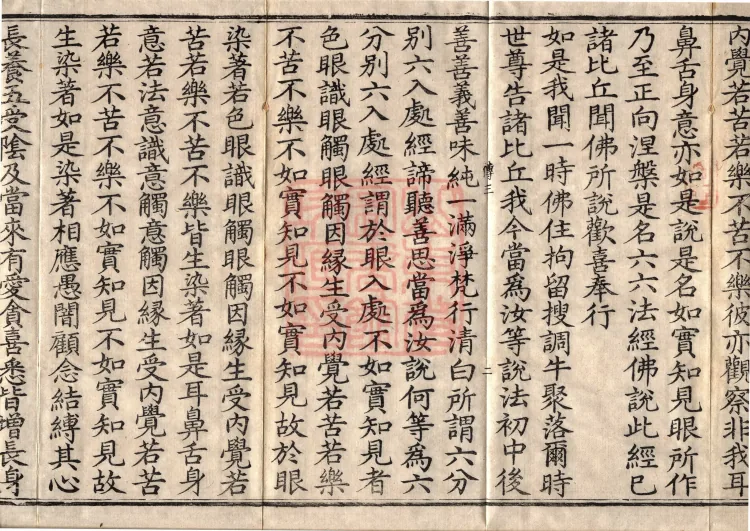 內覺若苦若樂不苦不樂彼亦觀察非我耳
鼻舌身意亦如是說是名如實知見眼所作
乃至正向涅槃是名六六法經佛說此經已
諸比丘聞佛所說歡喜奉行
如是我聞一時佛住拘留搜調牛聚落爾時
世尊告諸比丘我今當爲汝等說法初中後
傳三
二
善善義善味純一滿淨梵行清白所謂六分
別六入處經諦聽善思當爲汝說何等爲六
分別六入處經謂於眼入處不如實知見者
色眼識眼觸眼觸因緣生受內覺若苦若樂
不苦不樂不如實知見不如實知見故於眼
染著若色眼識眼觸眼觸因緣生受內覺若
苦若樂不苦不樂皆生染著如是耳鼻舌身
意若法意識意觸意觸因緣生受內覺若苦
若樂不苦不樂不如實知見不如實知見故
生染著如是染著相應愚闇顧念結縛其心
長養五受陰及當來有愛貪喜悉皆增長身